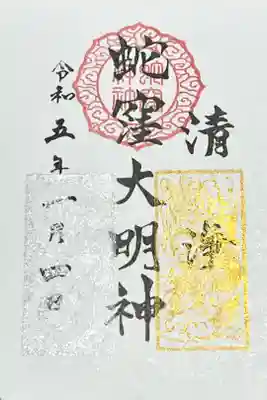 清浄
蛇窪大明神
令和五年一月四日